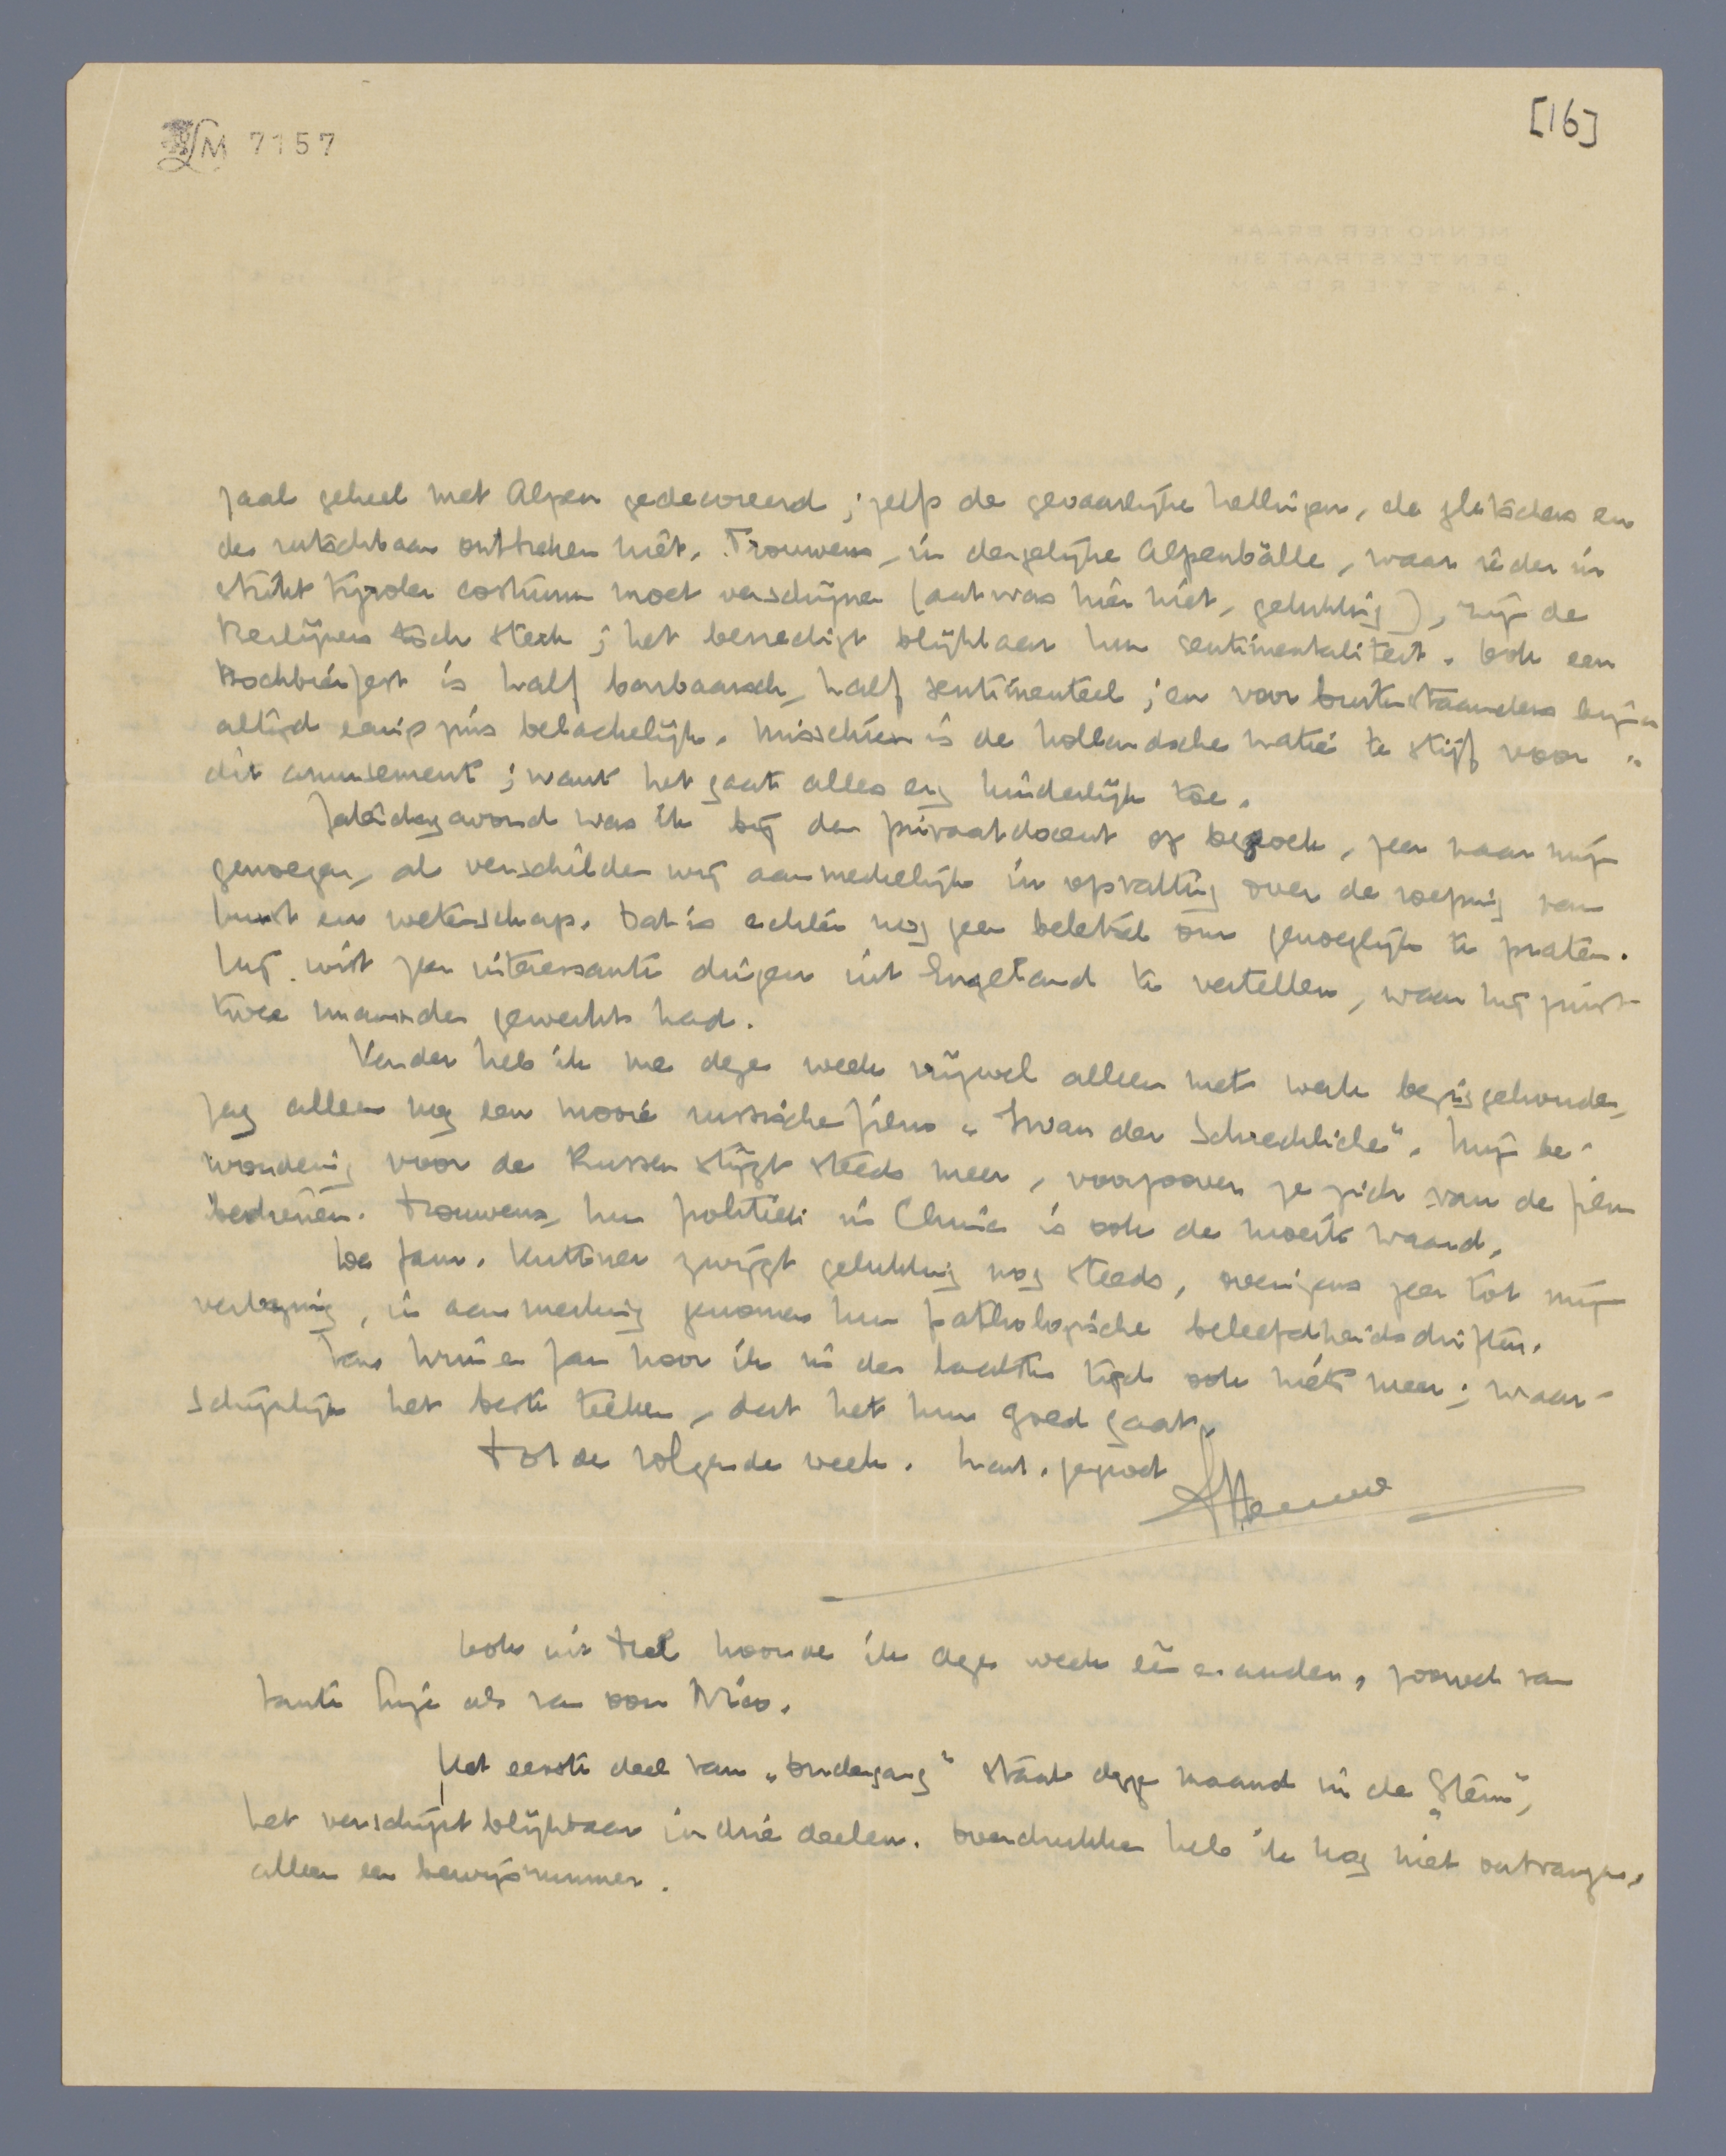 LM 7157
[16]
zaal geheel met Alpen gedecoreerd; zelfs de gevaarlijke hellingen, de gletschers en
de rutschbaan ontbraken niet. Trouwens, in dergelijke Alpenbälle, waar ieder in
strikt Tyroler costuum moet verschijnen (dat was hier niet, gelukkig), zijn de
Berlijners toch sterk; het bevredigt blijkbaar hun sentimentaliteit. Ook een
Bockbierfest is half barbaarsch, half sentimenteel; en voor buitenstaanders bijna
altijd eenigszins belachelijk. Misschien is de hollandsche natie te stijf voor
dit amusement; want het gaat alles erg kinderlijk toe.
Zaterdagavond was ik bij den privaatdocent op bezoek, zeer naar mijn
genoegen, al verschilden wij aanmerkelijk in opvatting over de roeping van
kunst en wetenschap. Dat is echter nog geen beletsel om genoeglijk te praten.
Hij wist zeer interessante dingen uit Engeland te vertellen, waar hij juist
twee maanden gewerkt had.
Verder heb ik me deze week vrijwel alleen met werk beziggehouden,
zag alleen nog een mooie russische film „Iwan der Schreckliche". Mijn be-
wondering voor de Russen stijgt steeds meer, voorzoover ze zich van de film
bedienen. Trouwens, hun politiek in China is ook de moeite waard.
De fam. Kuttner zwijgt gelukkig nog steeds, overigens zeer tot mijn
verbazing, in aanmerking genomen hun pathologische beleefdheidsdriften.
Van Wim en Jan hoor ik in den laatsten tijd ook niets meer; waar-
schijnlijk het beste teeken, dat het hun goed gaat.
Tot de volgende week. Hart. gegroet
Menno
Ook uit Tiel hoorde ik deze week een en ander, zoowel van
tante als van oom Nico.
Het eerste deel van „Ondergang" staat deze maand in de „Stem",
het verschijnt blijkbaar in drie deelen. Overdrukken heb ik nog niet ontvangen,
alleen een bewijsnummer.